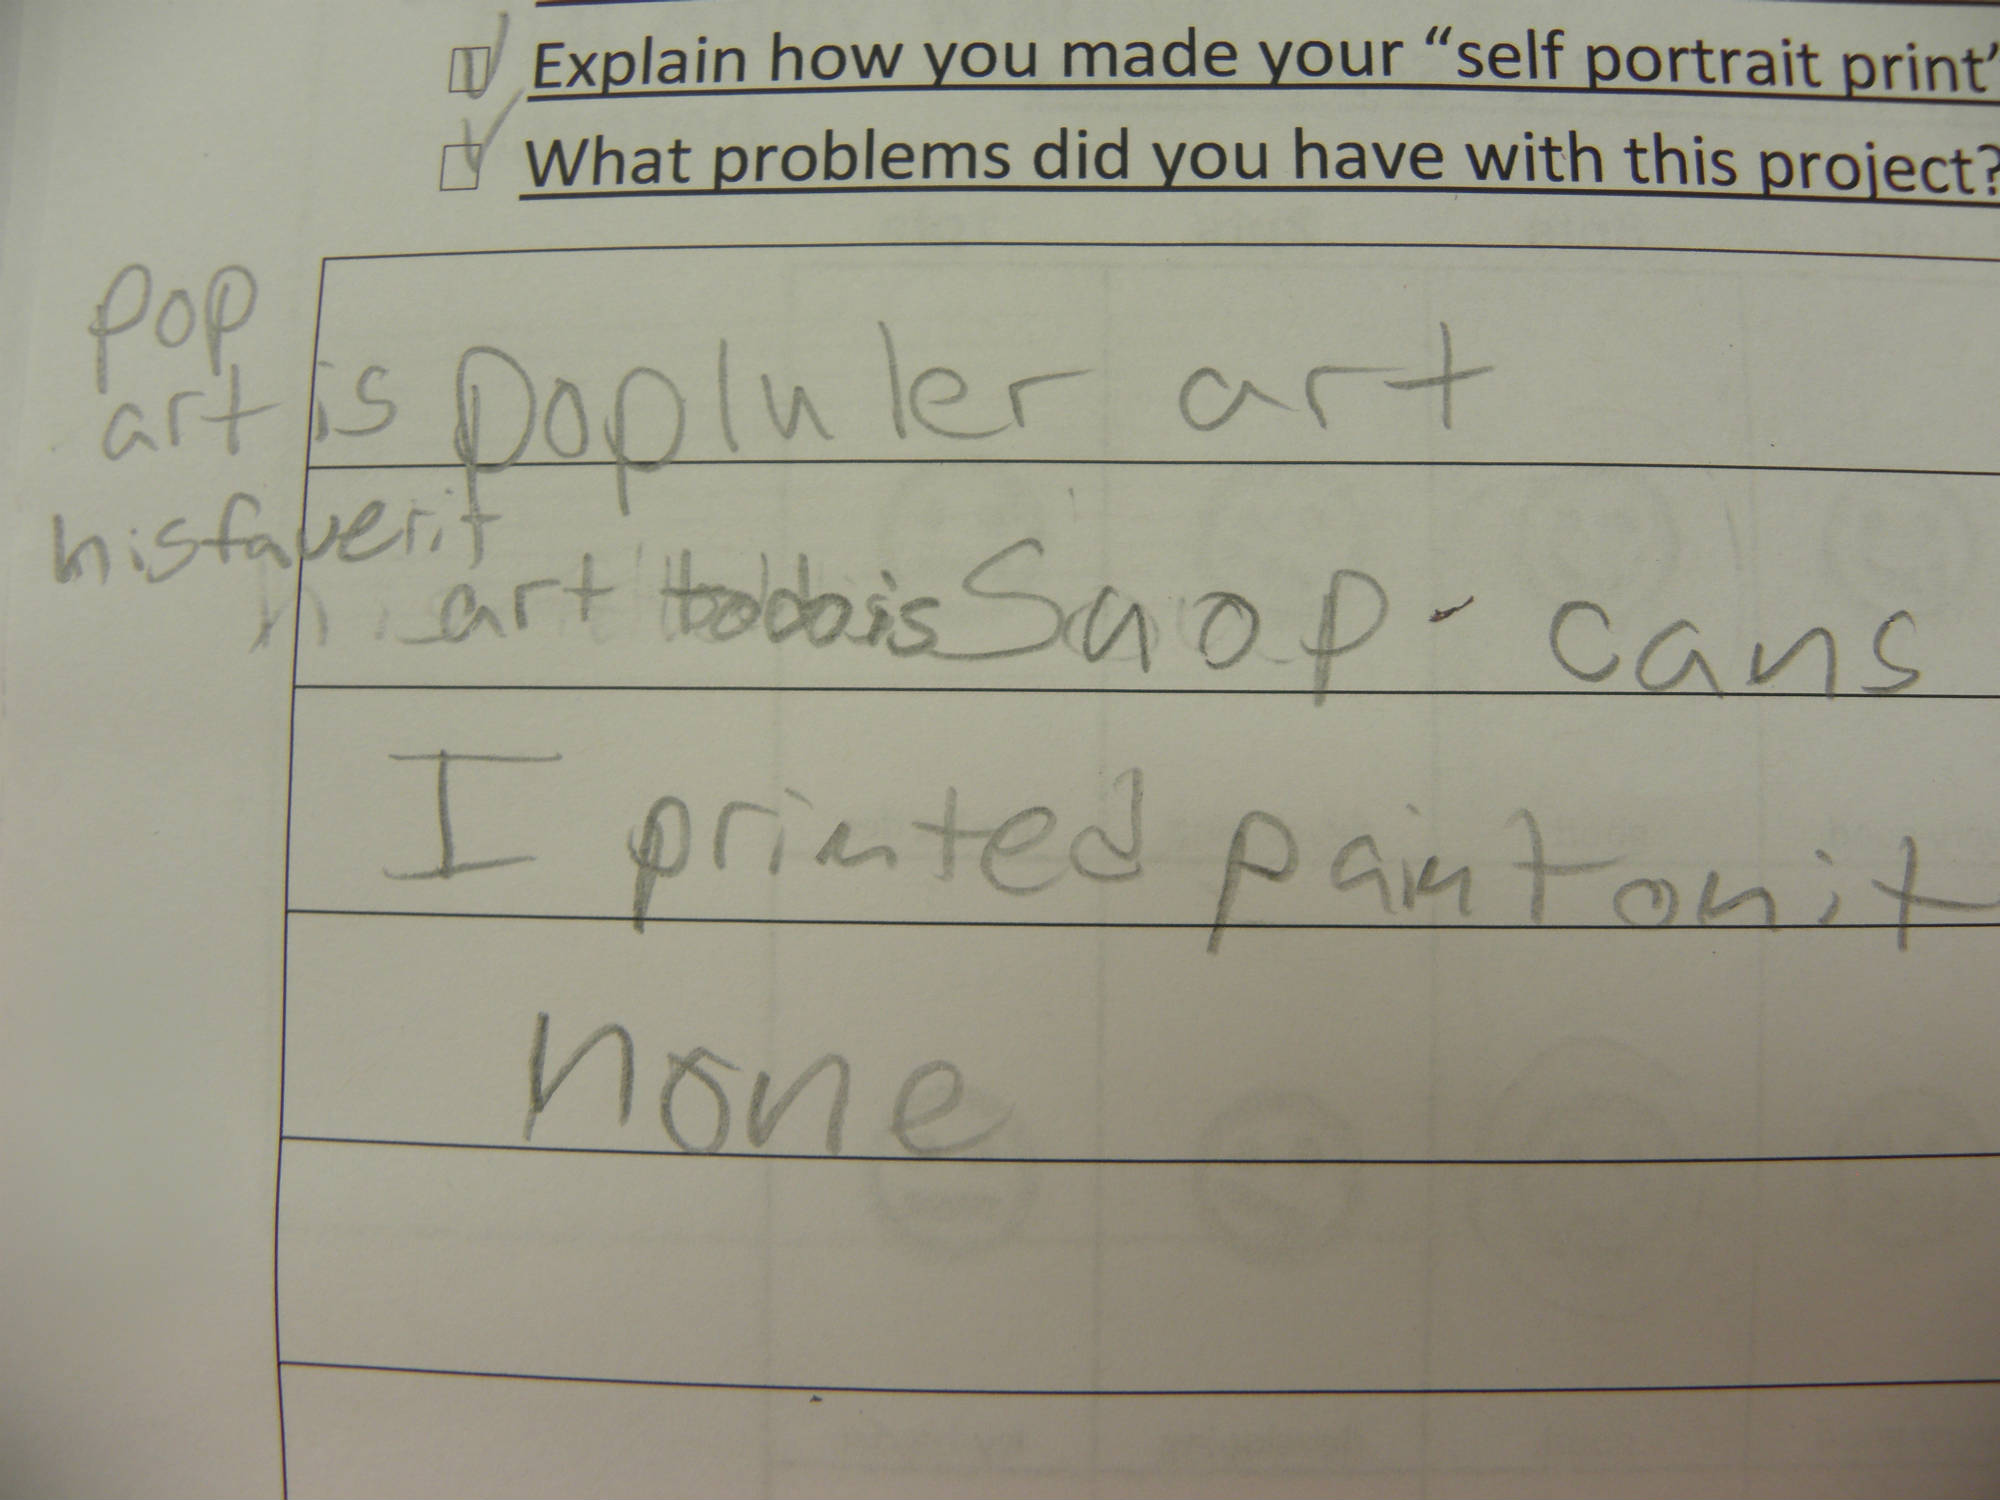 Explain how you made your “self portrait print”
What problems did you have with this project?
pop
art is popluler art
hisfaverit
art todois Suop - cans
I printed paint on it
none